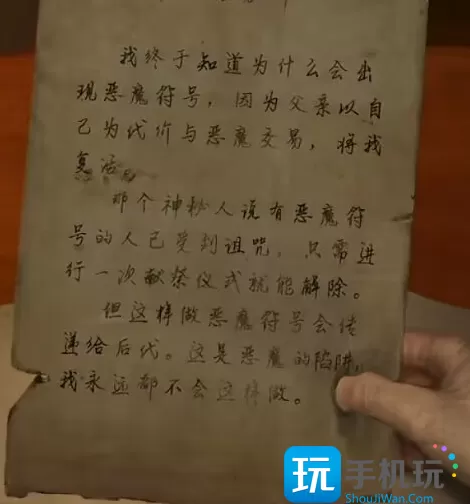 我终于知道为什么会出
现恶魔符号，因为父亲以自
己为代价与恶魔交易，将我
复活。
那个神秘人说有恶魔符
号的人已受到诅咒，只需进
行一次献祭仪式就能解除。
但这样做恶魔符号会传
递给后代。这是恶魔的陷阱，
我永远都不会这样做。
玩 手机玩
ShouJiWan.Com